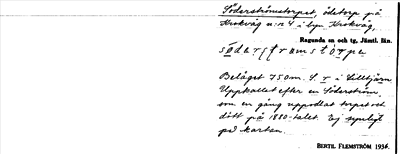 Söderströmstorpet, ödetorp på
Krokvåg n:o 4 i byn Krokvåg,
Ragunda sn och tg, Jämtl. län.
Beläget 750 m. S. i Lilltjärn
Uppkallat efter en Söderström
som en gång uppodlat torpet och
dött på 1880-talet. Ej synligt
på kartan.
BERTIL FLEMSTRÖM 1936.